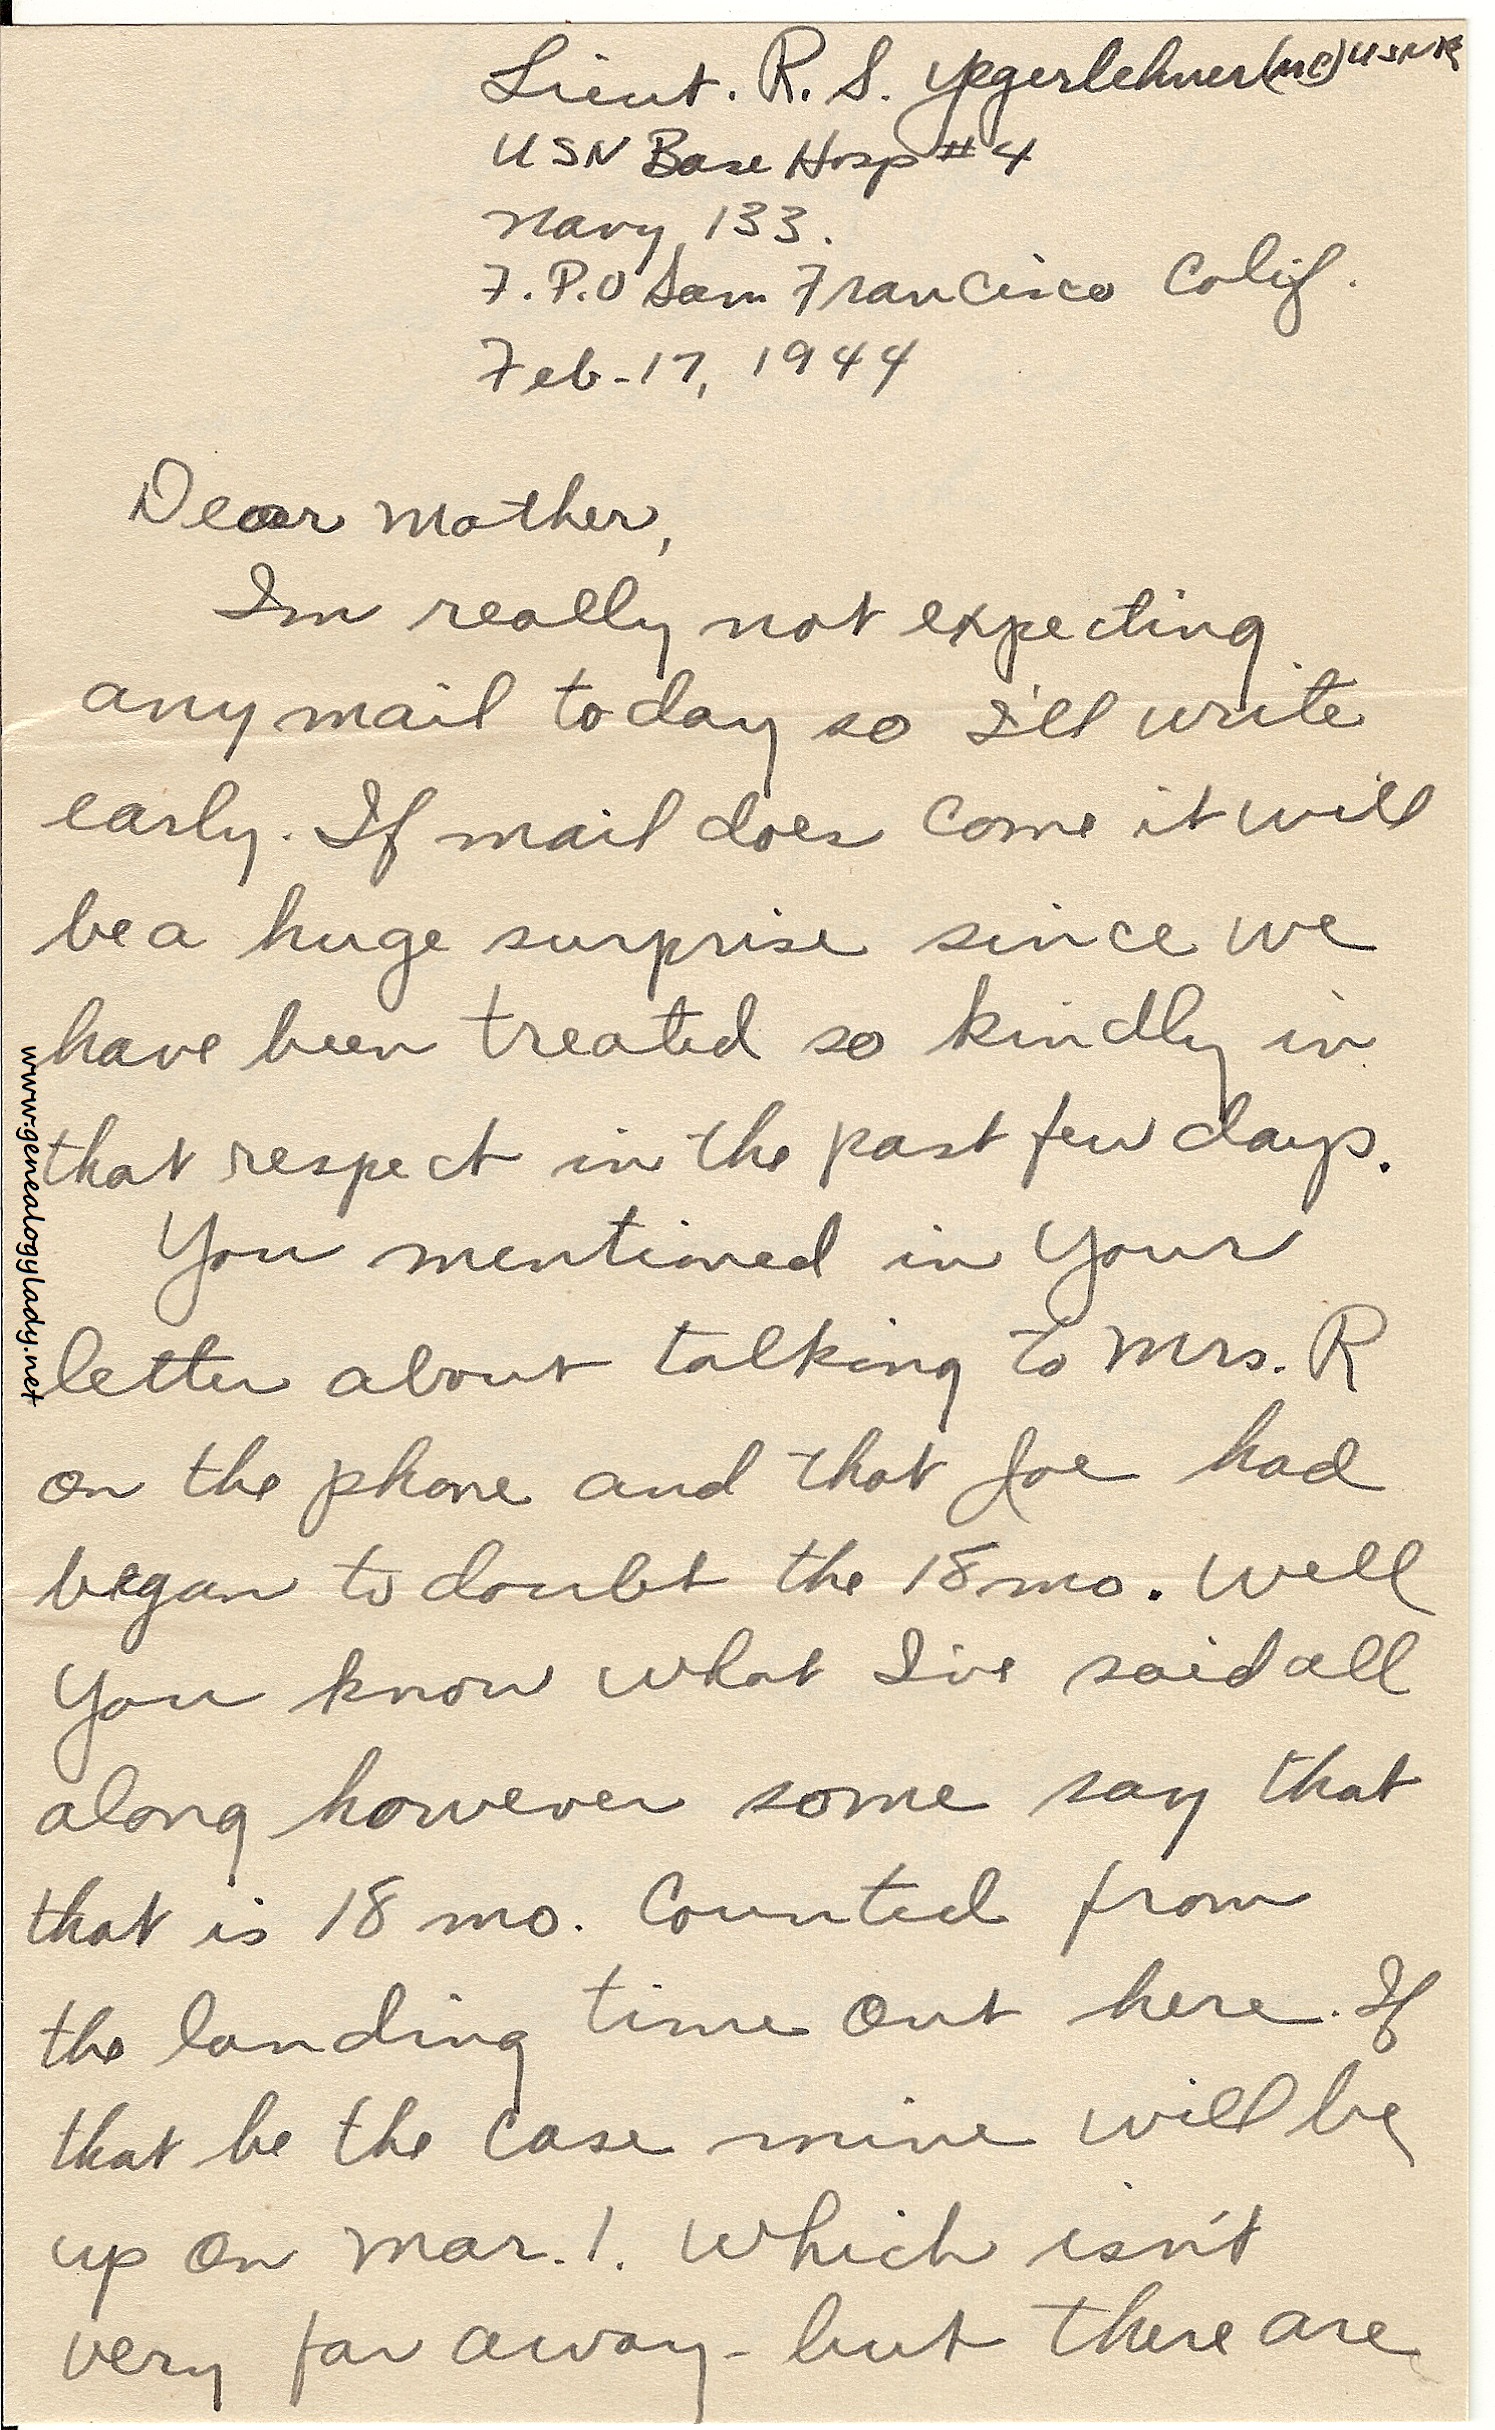 Lieut. R. S. Yegerlehner (MC) USNR
USN Base Hosp #4
Navy 133.
F.P.O San Francisco Calif.
Feb-17, 1944
Dear Mother,
Im really not expecting
any mail today so I'll write
early. If mail does come it will
be a huge surprise since we
have been treated so kindly in
that respect in the past few days.
You mentioned in your
letter about talking to Mrs. R
on the phone and that Joe had
began to doubt the 18 mo. Well
you know what Ive said all
along however some say that
that is 18 mo. Counted from
the landing time out here. If
that be the case mine will be
up on Mar. 1. Which isn't
very far away - but there are
www.genealogylady.net